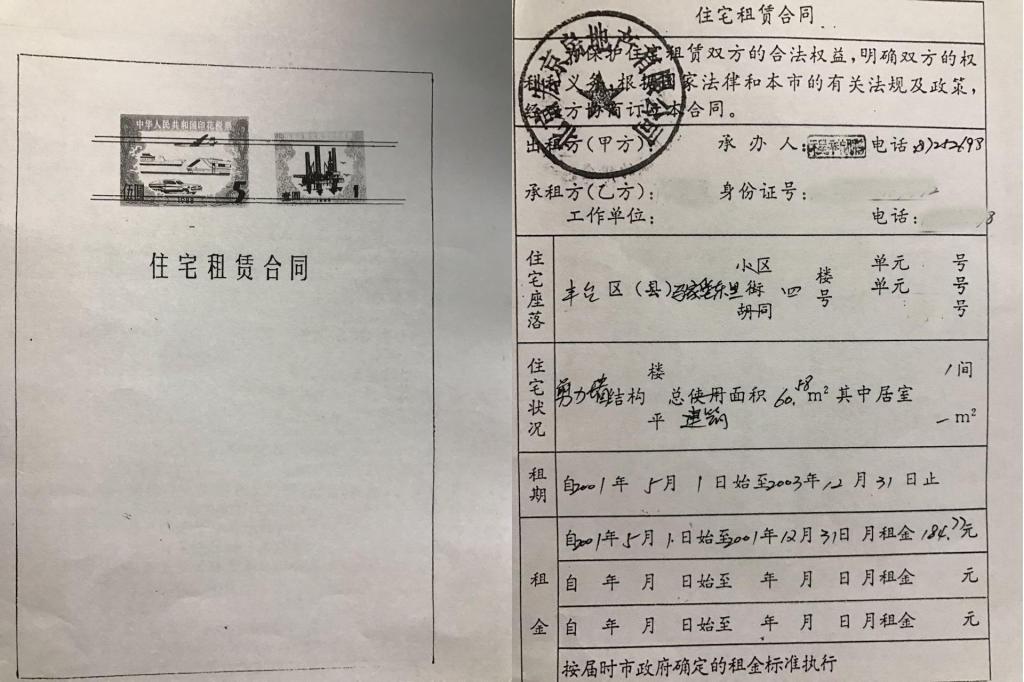 中华人民共和国印花税票
伍圆
5
1988
壹圆
1
1988
住宅租赁合同
住宅租赁合同
为保护住宅租赁双方的合法权益，明确双方的权
义务，根据国家法律和本市的有关法规及政策，
经双方协商订立本合同。
出租方(甲方)
承办人：
电话:
承租方(乙方)：
身份证号：
工作单位：
电话：
住宅座落
丰台区(县)
小区
街
胡同
四
楼
号
单元 号
单元 号
号
住宅状况
剪力墙结构
楼
平
总使用面积60.58m² 其中居室
建筑
1间
m²
租期
自2001年 5月 1日始至2003年12月31日止
租金
自2001年5月1日始至2001年12月31日 月租金184.77元
自 年 月 日始至 年 月 日月租金 元
自 年 月 日始至 年 月 日月租金 元
按届时市政府确定的租金标准执行